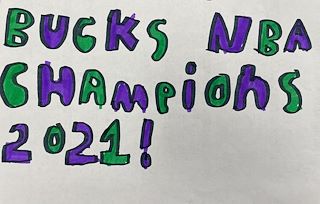 BUCKS NBA
CHAMpiohS
2021!